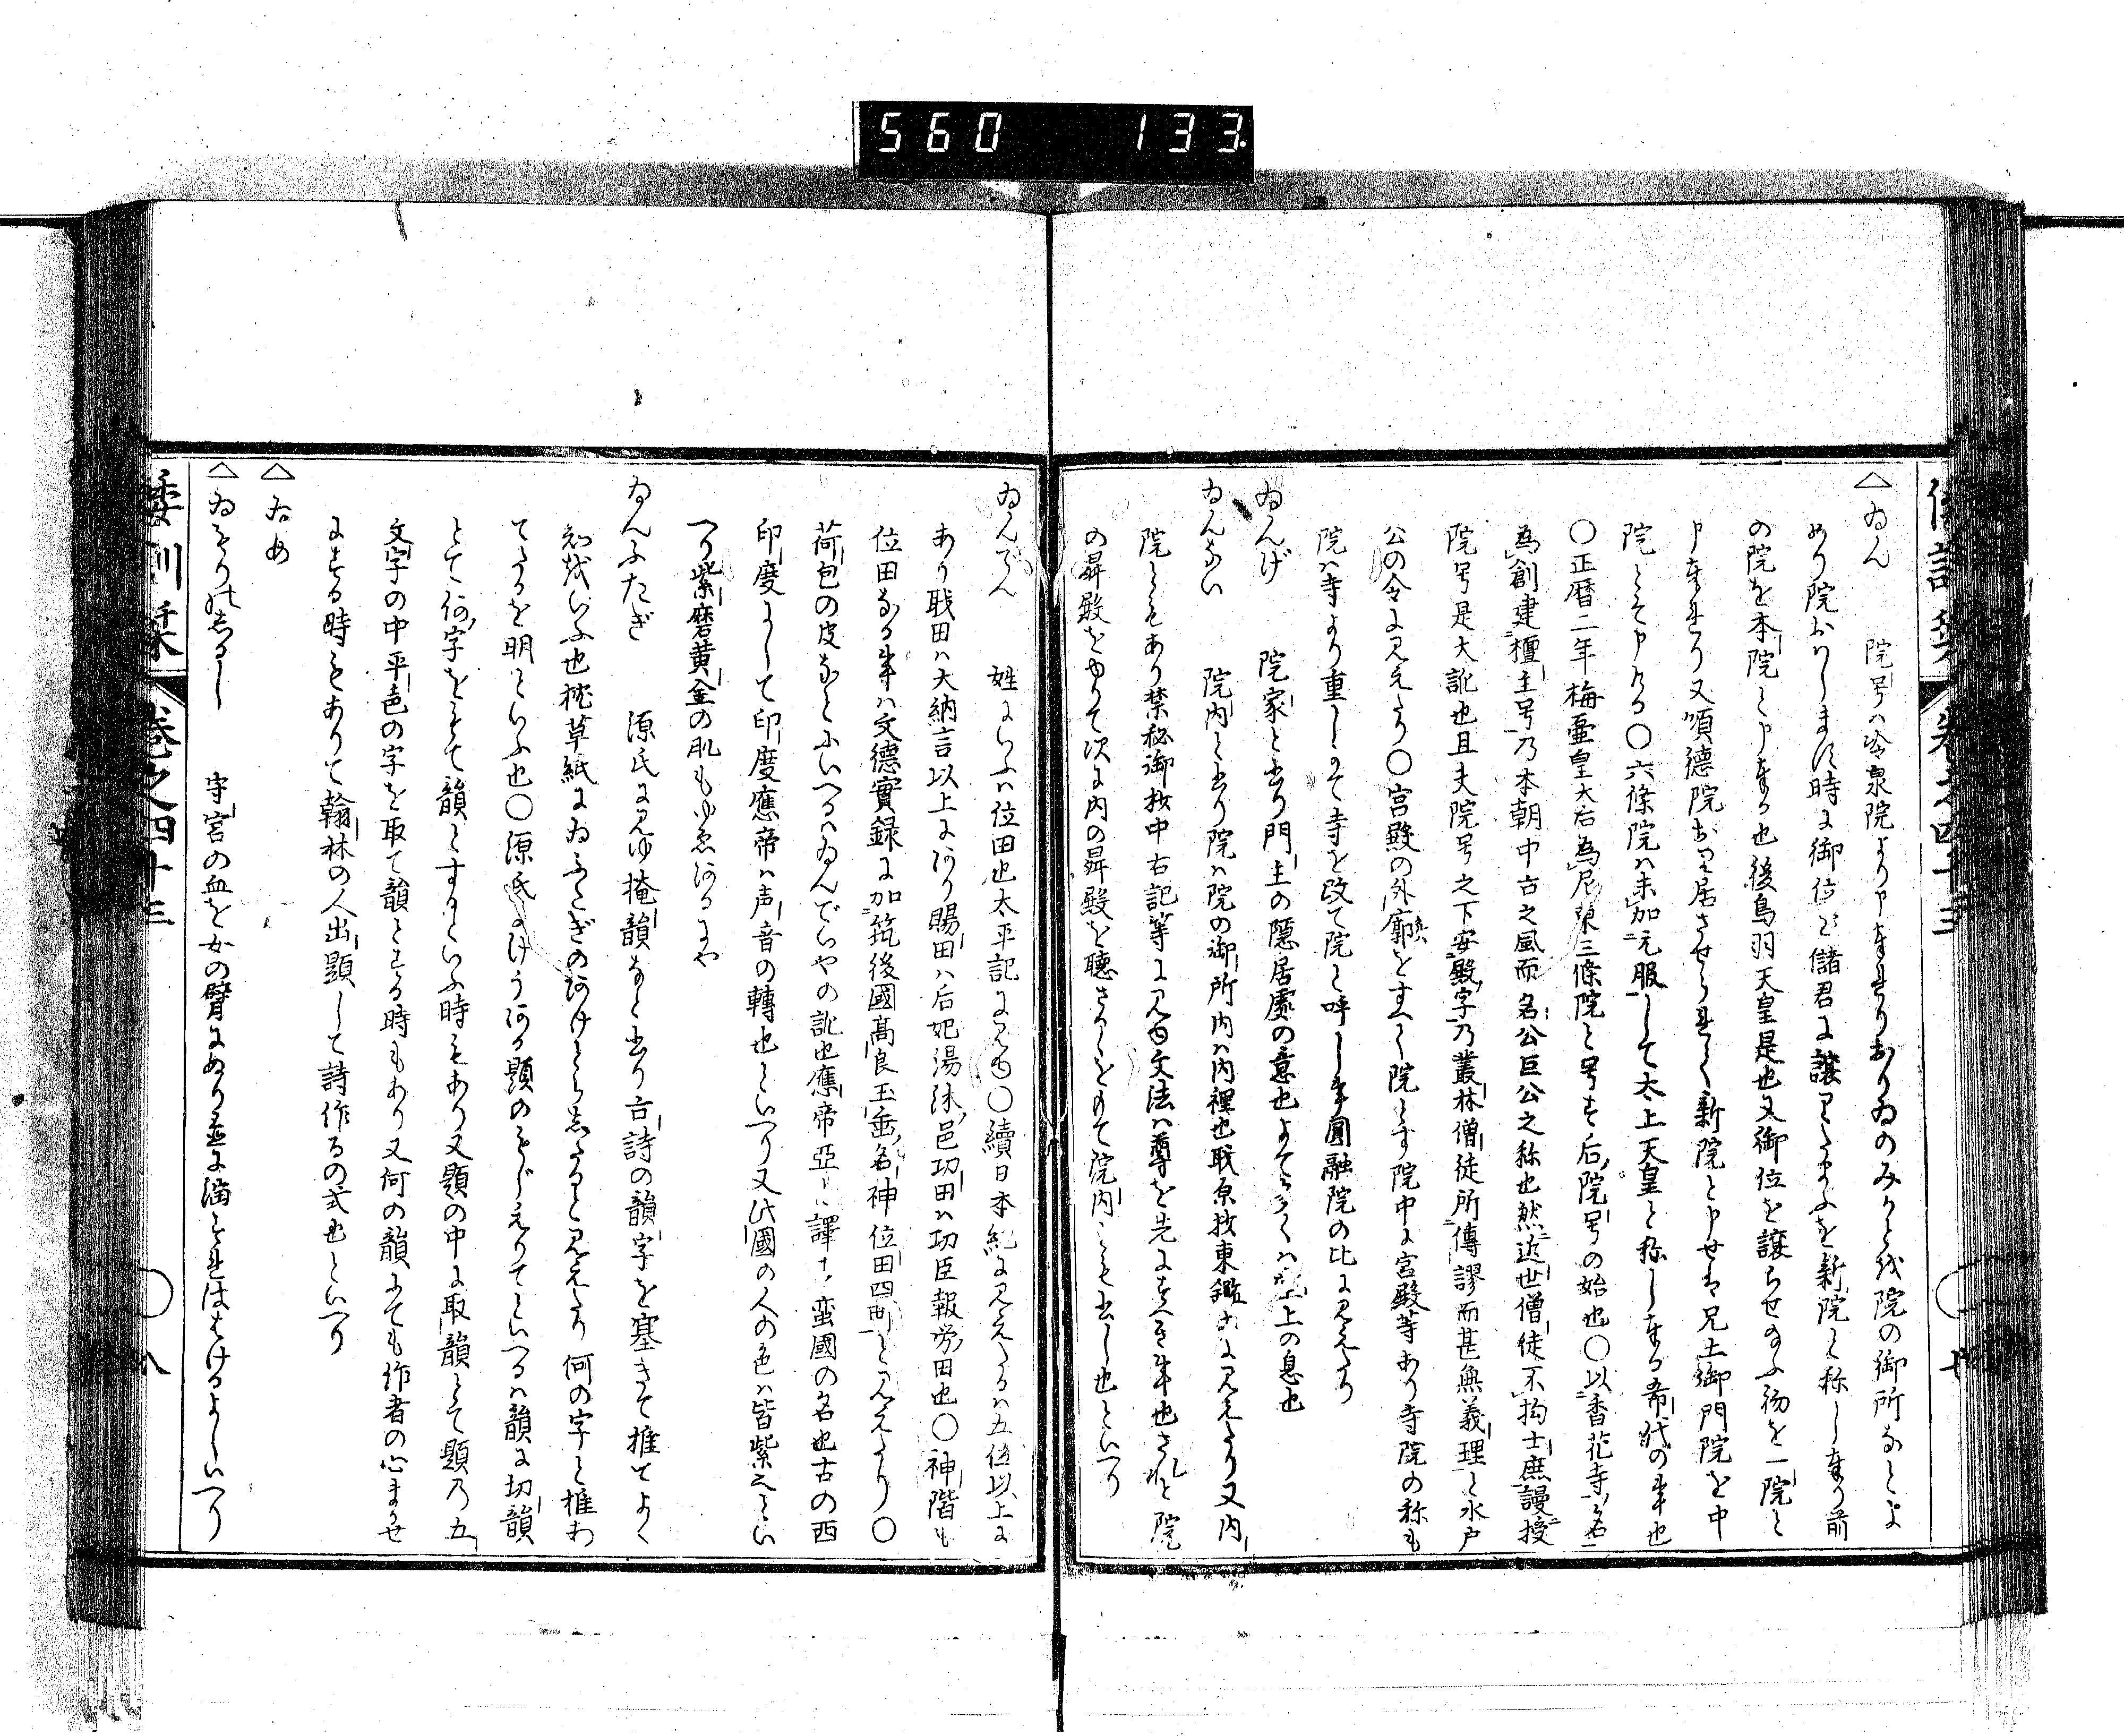 560 133
△ゐん 院号ハ冷泉院より申奉れりおりゐのみかとは院の御所なとよ
めり院おハしま須時に御位を儲君に譲りたまふを新院と称し奉り前
の院を本院と申奉る也後鳥羽天皇是也又御位を譲らせ給ふ後を一院と
申奉れり又順徳院おり居させられて新院と申せは兄土御門院を中
院とそ申ける〇六條院ハ未加元服して太上天皇と称し奉る希代の事也
〇正暦二年梅壷皇太后為尼東三條院と号す后院号の始也〇以香花寺名
為創建檀主号乃本朝中古之風而名公巨公之称也然近世僧徒不拘士庶謾授
院号是大訛也且夫院号之下安殿字乃叢林僧徒所傳謬而甚無義理と水戸
公の令に見えたり〇宮殿の外廓をすへて院とす院中に宮殿等あり寺院の称も
院ハ寺より重しとて寺を改て院と呼し事圓融院の比に見えたり
ゐんげ 院家と書り門主の隠居處の意也よて多くハ堂上の息也
ゐんない 院内と書り院ハ院の御所内ハ内裡也職原抄東鑑等に見えたり又内
院ともあり禁秘御抄中右記等に見ゆ文法ハ尊を先にすへき事也されと院
の昇殿をゆりて次に内の昇殿を聴さるゝをもて院内とも書し也といへり
ゐんでん 姓にいふハ位田也太平記に見ゆ〇續日本紀に見えたるハ五位以上に
あり職田ハ大納言以上にあり賜田ハ后妃湯沐邑功田ハ功臣報労田也〇神階も
位田ある事ハ文徳實録に加筑後國高良玉垂名神位田四町と見えたり〇
荷包の皮なとにいへるハゐんでいやの訛也應帝亞と譯す蛮國の名也古の西
印度にして印度應帝ハ声音の轉也といへり又此國の人の色ハ皆紫也とい
へり紫磨黄金の肌もゆゑあるにや
ゐんふたぎ 源氏に見ゆ掩韻なと書り古詩の韻字を塞きて推てよく
知故いふ也枕草紙にゐんふたぎのあけとらしたると見えたり何の字と推わ
てたるを明といふ也〇源氏にけうある題のもじえりてといへるハ韻に切韻
とて何字をもて韻とするといふ時もあり又題の中に取韻とて題乃五
文字の中平色の字を取て韻とする時もあり又何の韻にても作者の心まかせ
にする時もありて翰林の人出題して詩作るの式也といへり
△ゐめ
△ゐもりのしるし 守宮の血を女の臂にぬり盃に満をれははけるよしいへり
倭訓栞 巻之四十三 八